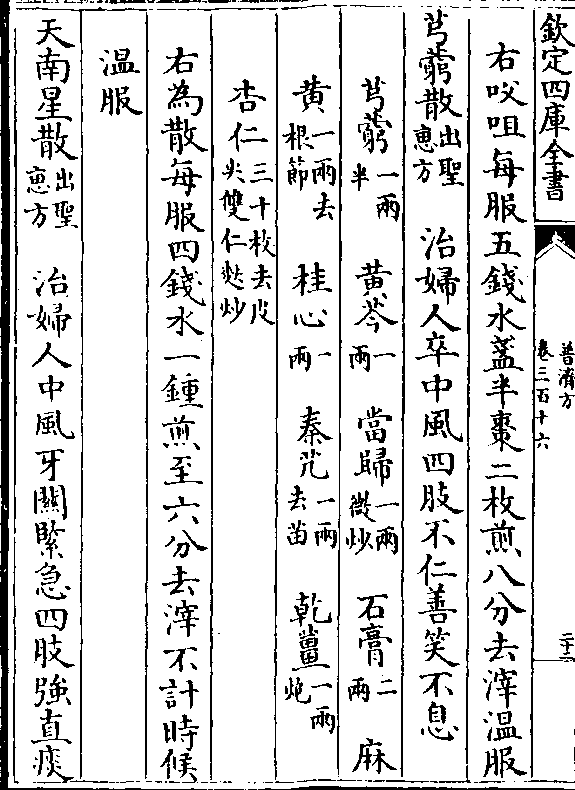 欽定四庫全書
普濟方
卷三百十六
二十二
右㕮咀每服五錢水盞半棗二枚煎八分去滓温服
芎藭散出聖惠方　治婦人卒中風四肢不仁善笑不息
芎藭一兩半　黄芩一兩　當歸一兩微炒　石膏二兩　麻
黄一兩去根節　桂心一兩　秦艽一兩去苗　乾薑一兩炮
杏仁二三十枚去皮尖雙仁麩炒
右為散每服四錢水一鍾煎至六分去滓不計時候
温服
天南星散出聖惠方　治婦人中風牙關緊急四肢強直痰